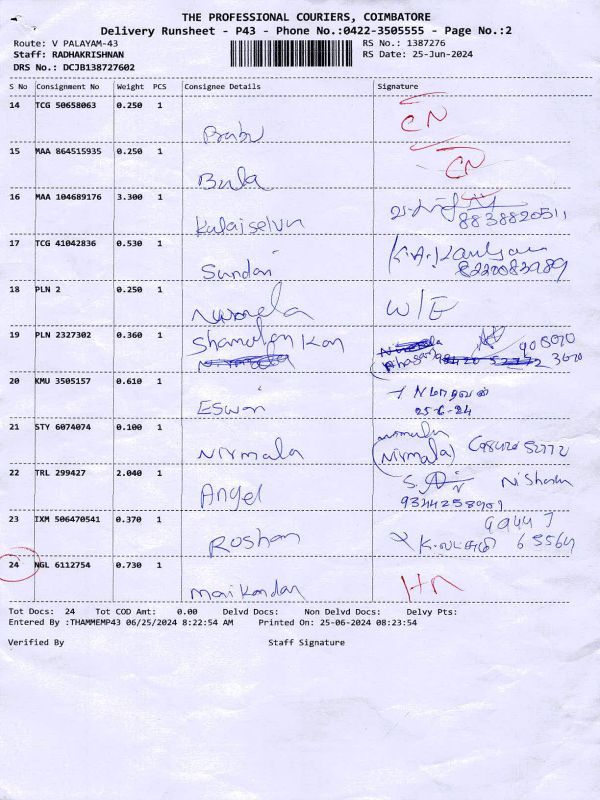 THE PROFESSIONAL COURIERS, COIMBATORE
Delivery Runsheet - P43 - Phone No.:0422-3505555 - Page No.:2
Route: V PALAYAM-43 RS No.: 1387276
Staff: RADHAKRISHNAN RS Date: 25-Jun-2024
DRS No.: DCJB138727602
S No Consignment No Weight PCS Consignee Details Signature
14 TCG 50658063 0.250 1
Babu CN
15 MAA 864515935 0.250 1
Bala CN
16 MAA 104689176 3.300 1
Kalaiselvn 8838820511
17 TCG 41042836 0.530 1
Sundari 8220083989
18 PLN 2 0.250 1
W/E
19 PLN 2327302 0.360 1
Kon
20 KMU 3505157 0.610 1
Eswari 25-6-24
21 STY 6074074 0.100 1
Nirmala (Nirmala)
22 TRL 299427 2.040 1
Angel
23 IXM 506470541 0.370 1
Roshan
24 NGL 6112754 0.730 1
Maikandan HN
Tot Docs: 24 Tot COD Amt: 0.00 Delvd Docs: Non Delvd Docs: Delvy Pts:
Entered By :THAMMEMP43 06/25/2024 8:22:54 AM Printed On: 25-06-2024 08:23:54
Verified By Staff Signature